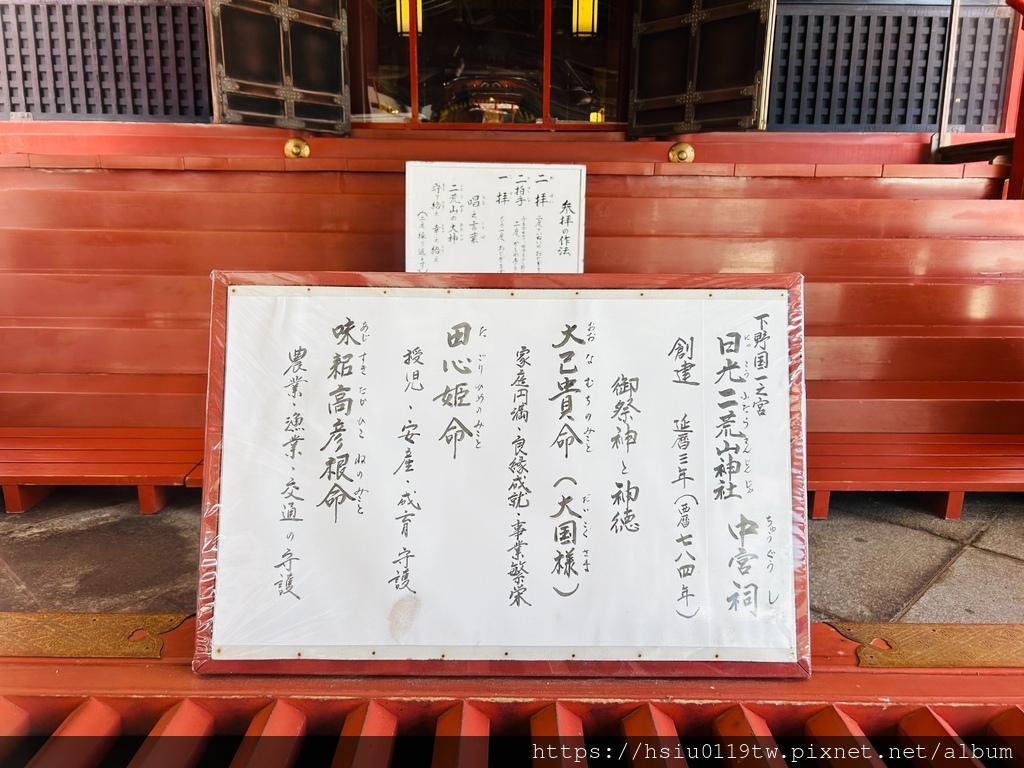 参拝の作法
二拝
二拍手
一拝
唱え言葉
二荒山の大神
守り給え 幸え給え
下野国一之宮
日光二荒山神社 中宮祠
にっこうふたらさんじんじゃ ちゅうぐうし
創建 延暦三年(西暦七八四年)
御祭神と神徳
大己貴命(大国様)
おおなむちのみこと だいこくさま
家庭円満・良縁成就・事業繁栄
田心姫命
たごりひめのみこと
授児・安産・成育守護
味耜高彦根命
あじすきたかひこねのみこと
農業・漁業・交通の守護
https://hsiu0119tw.pixnet.net/album